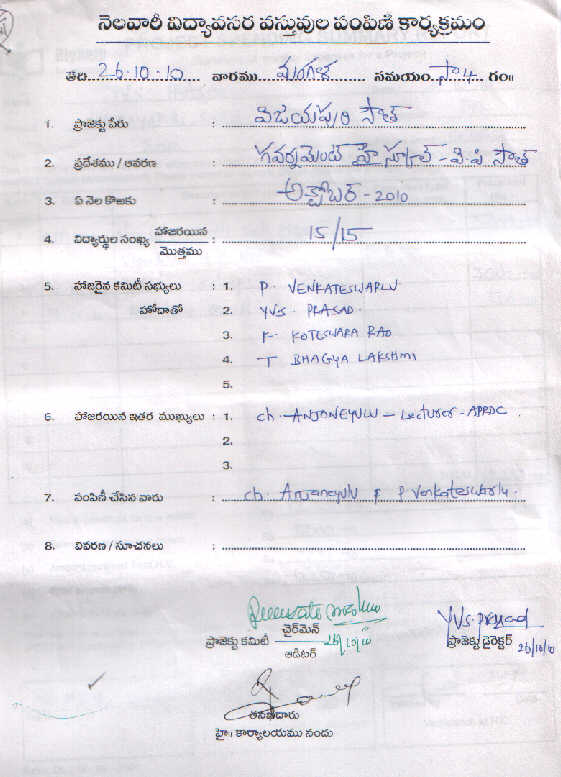 నెలవారీ విద్యావసర వస్తువుల పంపిణీ కార్యక్రమం
తేది. 26.10.10 వారము మంగళ సమయం. సా4 గం॥
1. ప్రాజెక్టు పేరు : విజయపురి సౌత్
2. ప్రదేశము / ఆవరణ : గవర్నమెంట్ హైస్కూల్ - వి.పి సౌత్
3. ఏ నెల కొఱకు : అక్టోబర్ - 2010
4. విద్యార్థుల సంఖ్య హాజరయిన / మొత్తము : 15/15
5. హాజరైన కమిటీ సభ్యులు : 1. P. VENKATESWARLU
హోదాతో 2. YVS. PRASAD.
3. K. KOTESWARA RAO
4. T BHAGYA LAKSHMI
5.
6. హాజరయిన ఇతర ముఖ్యులు : 1. Ch. ANJANEYULU - Lecturer - APRDC.
2.
3.
7. పంపిణీ చేసిన వారు : Ch. Anjaneyulu & P Venkateswarlu.
8. వివరణ / సూచనలు :
ప్రాజెక్టు కమిటీ చైర్‌మెన్ / ఆడిటర్ 26/10/10
Y.V.S. Prasad
ప్రాజెక్టు డైరెక్టర్ 26/10/10
తనఖీదారు
హై॥ కార్యాలయము నందు